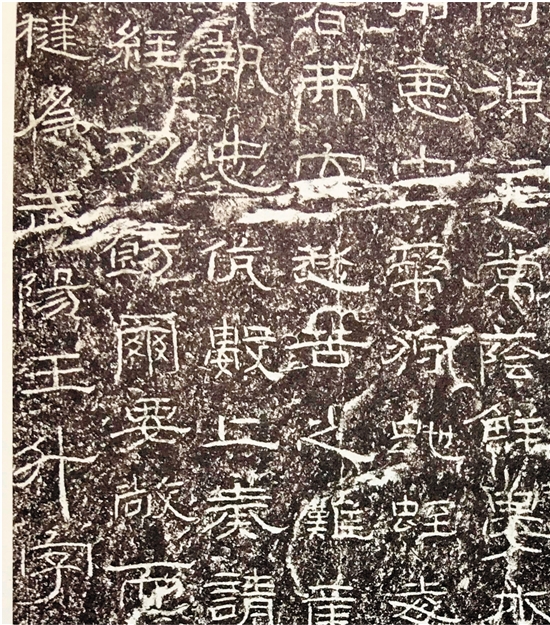 阿湶泥常蔭鮮晏木
惡虫弊狩虵蛭毒
者弗安愁苦之難焉
執忠伉數上奏請
經功飭爾要敞而
楗為武陽王升字